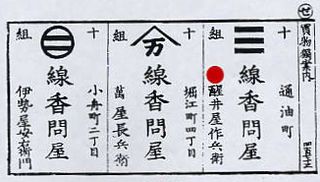 せ
買物獨案内
十
組
通油町
線香問屋
醒井屋作兵衛
十
組
万
堀江町四丁目
線香問屋
萬屋長兵衛
十
組
小舟町二丁目
線香問屋
伊勢屋安右衛門